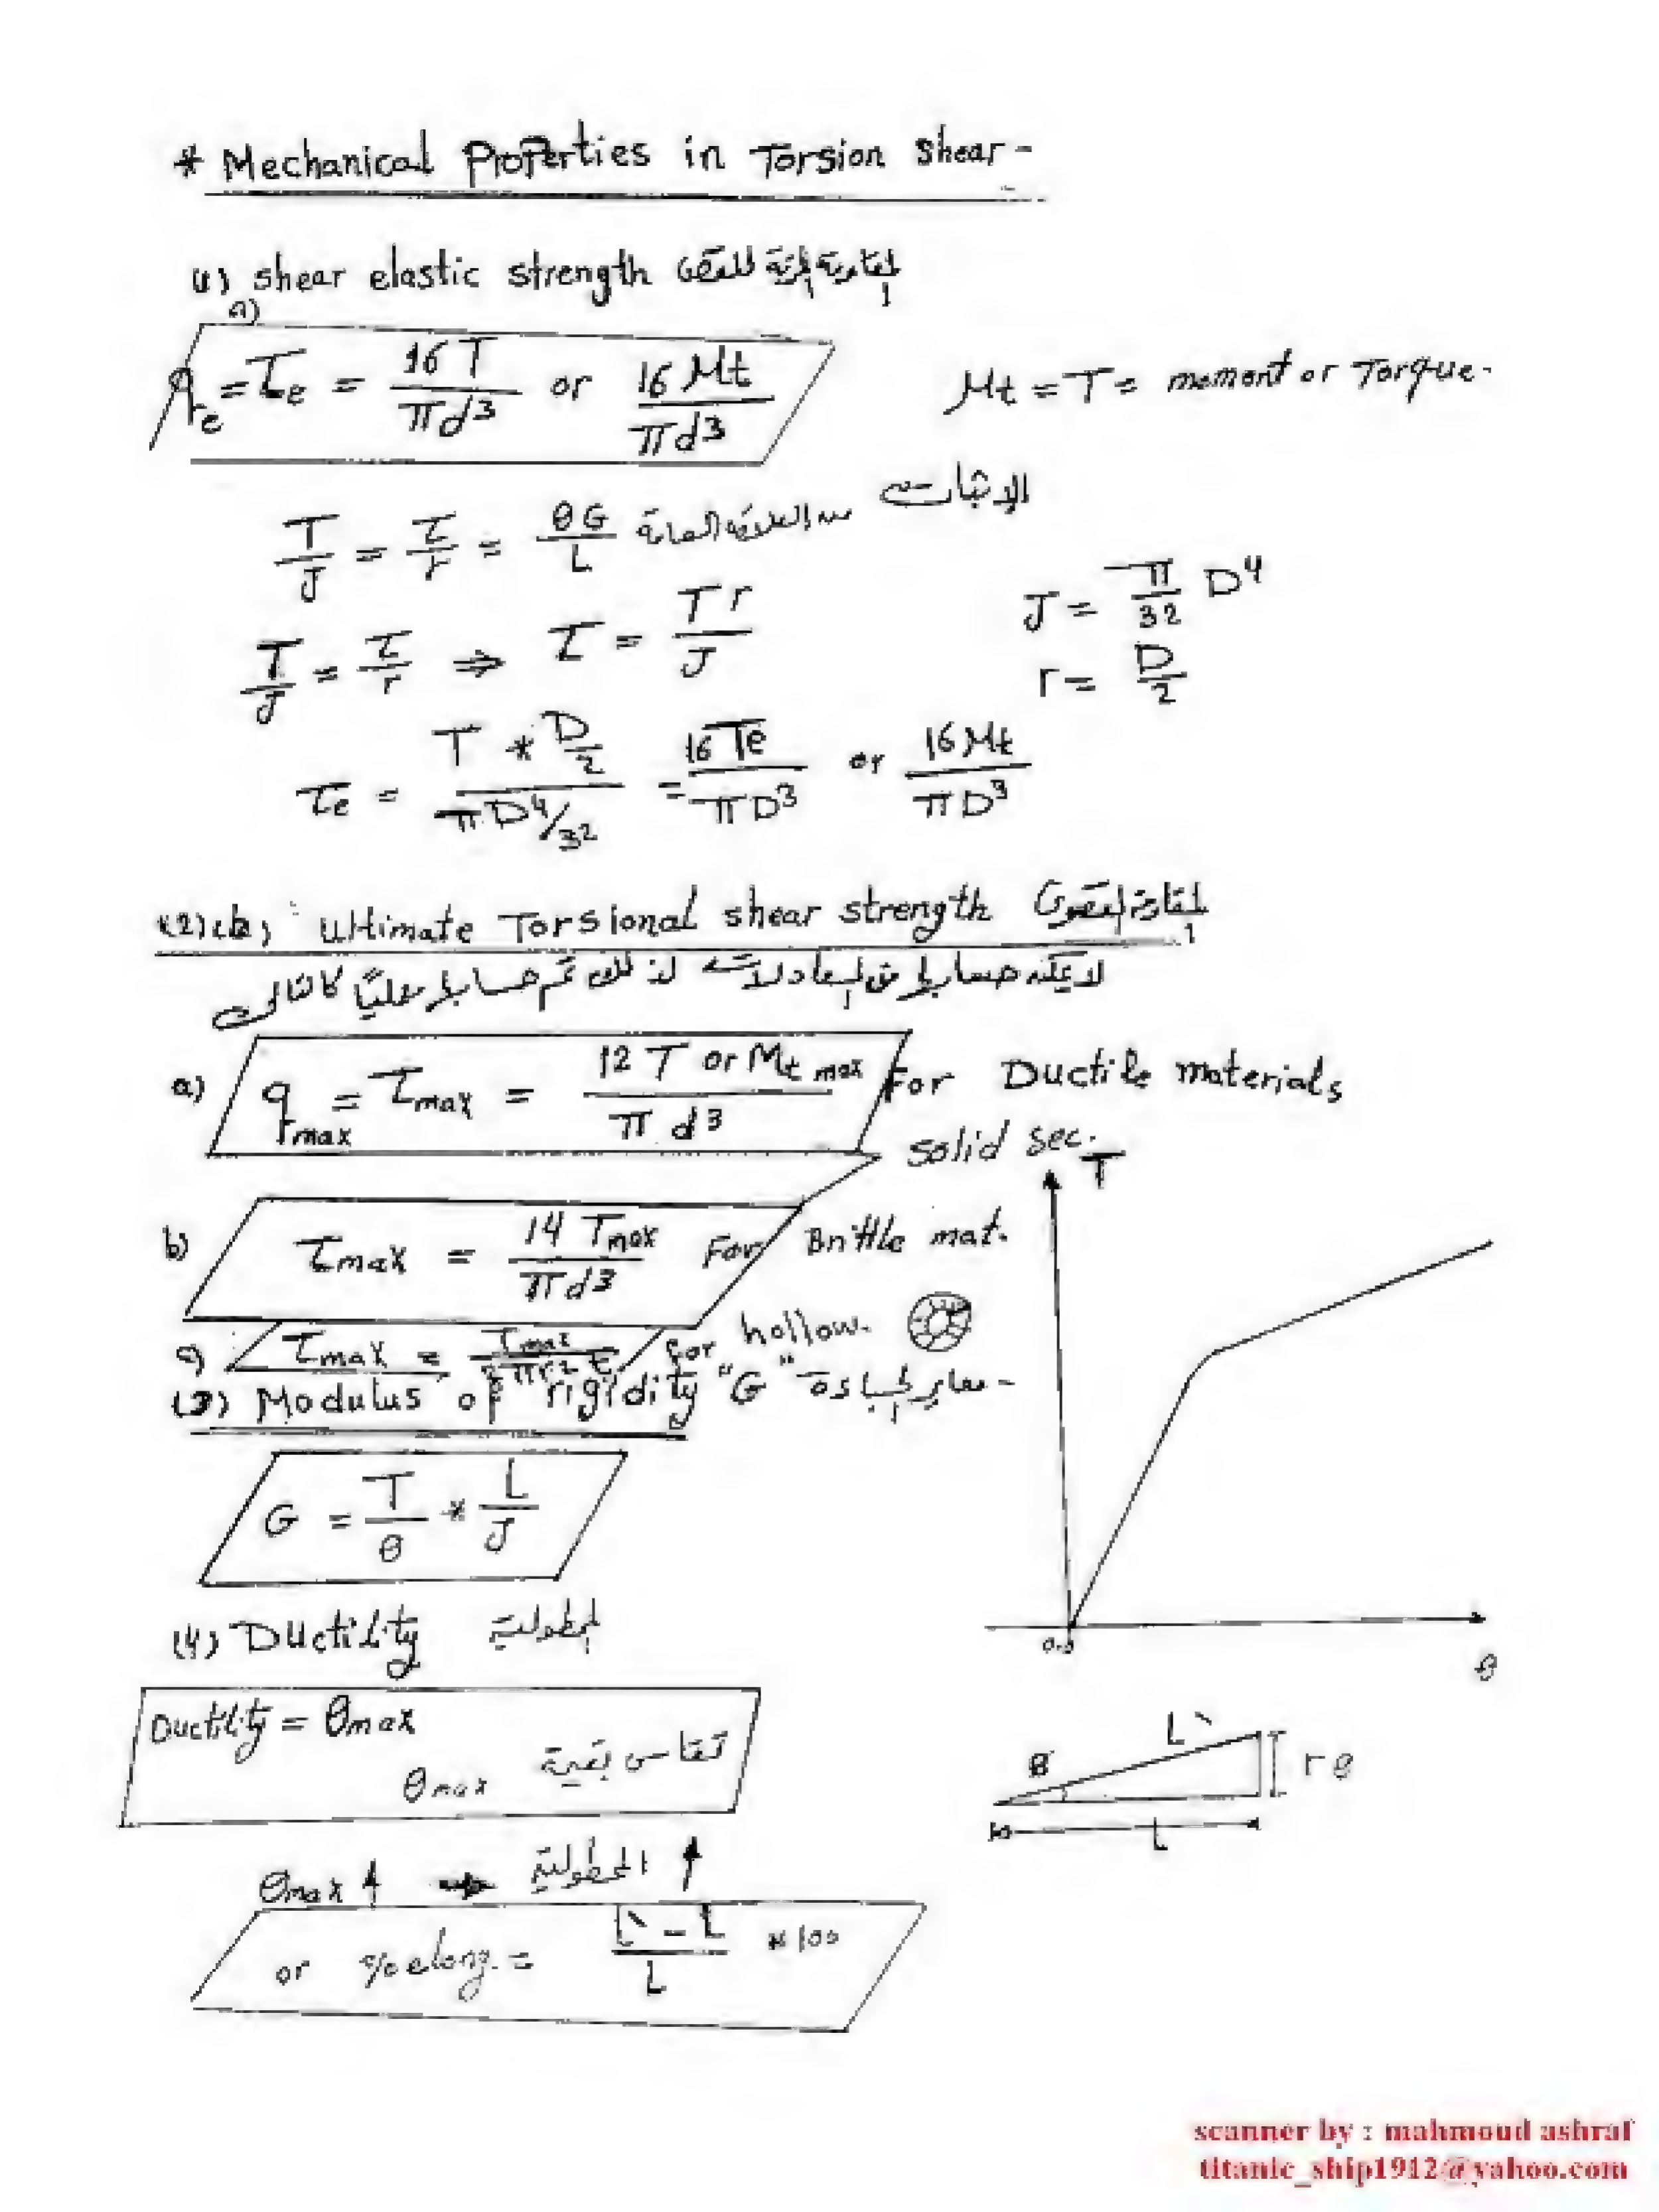 * Mechanical Properties in Torsion Shear -
(1) shear elastic strength المقاومة المرنة للقص
a)
q_e = τ_e = 16 T / πd³ or 16 Mt / πd³
Mt = T = moment or Torque.
الإثبات
T/J = τ/r = θG/L من العلاقة العامة
J = π/32 D⁴
T/J = τ/r ⇒ τ = T r / J
r = D/2
τ_e = T * D/2 / πD⁴/32 = 16 Te / πD³ or 16 Mt / πD³
(2) (b) Ultimate Torsional shear strength المقاومة القصوى
لا يمكن حسابها من المعادلات لذلك تم حسابها عمليًا كالتالى
a) q_max = τ_max = 12 T or Mt max / π d³ For Ductile materials
solid sec.
T
b) τ_max = 14 T_max / πd³ For Brittle mat.
c) τ_max = T_max / 2πr² t for hollow.
(3) Modulus of rigidity "G" معاير الجساءة -
G = T/θ * L/J
(4) Ductility الممطولية
0.0
θ
Ductility = θ_max
θ_max تقاس بقيمة
L` θ r θ
L
θ_max ↑ → الممطولية ↑
or % elong. = L` - L / L * 100
scanner by : mahmoud ashraf
titanic_ship1912@yahoo.com